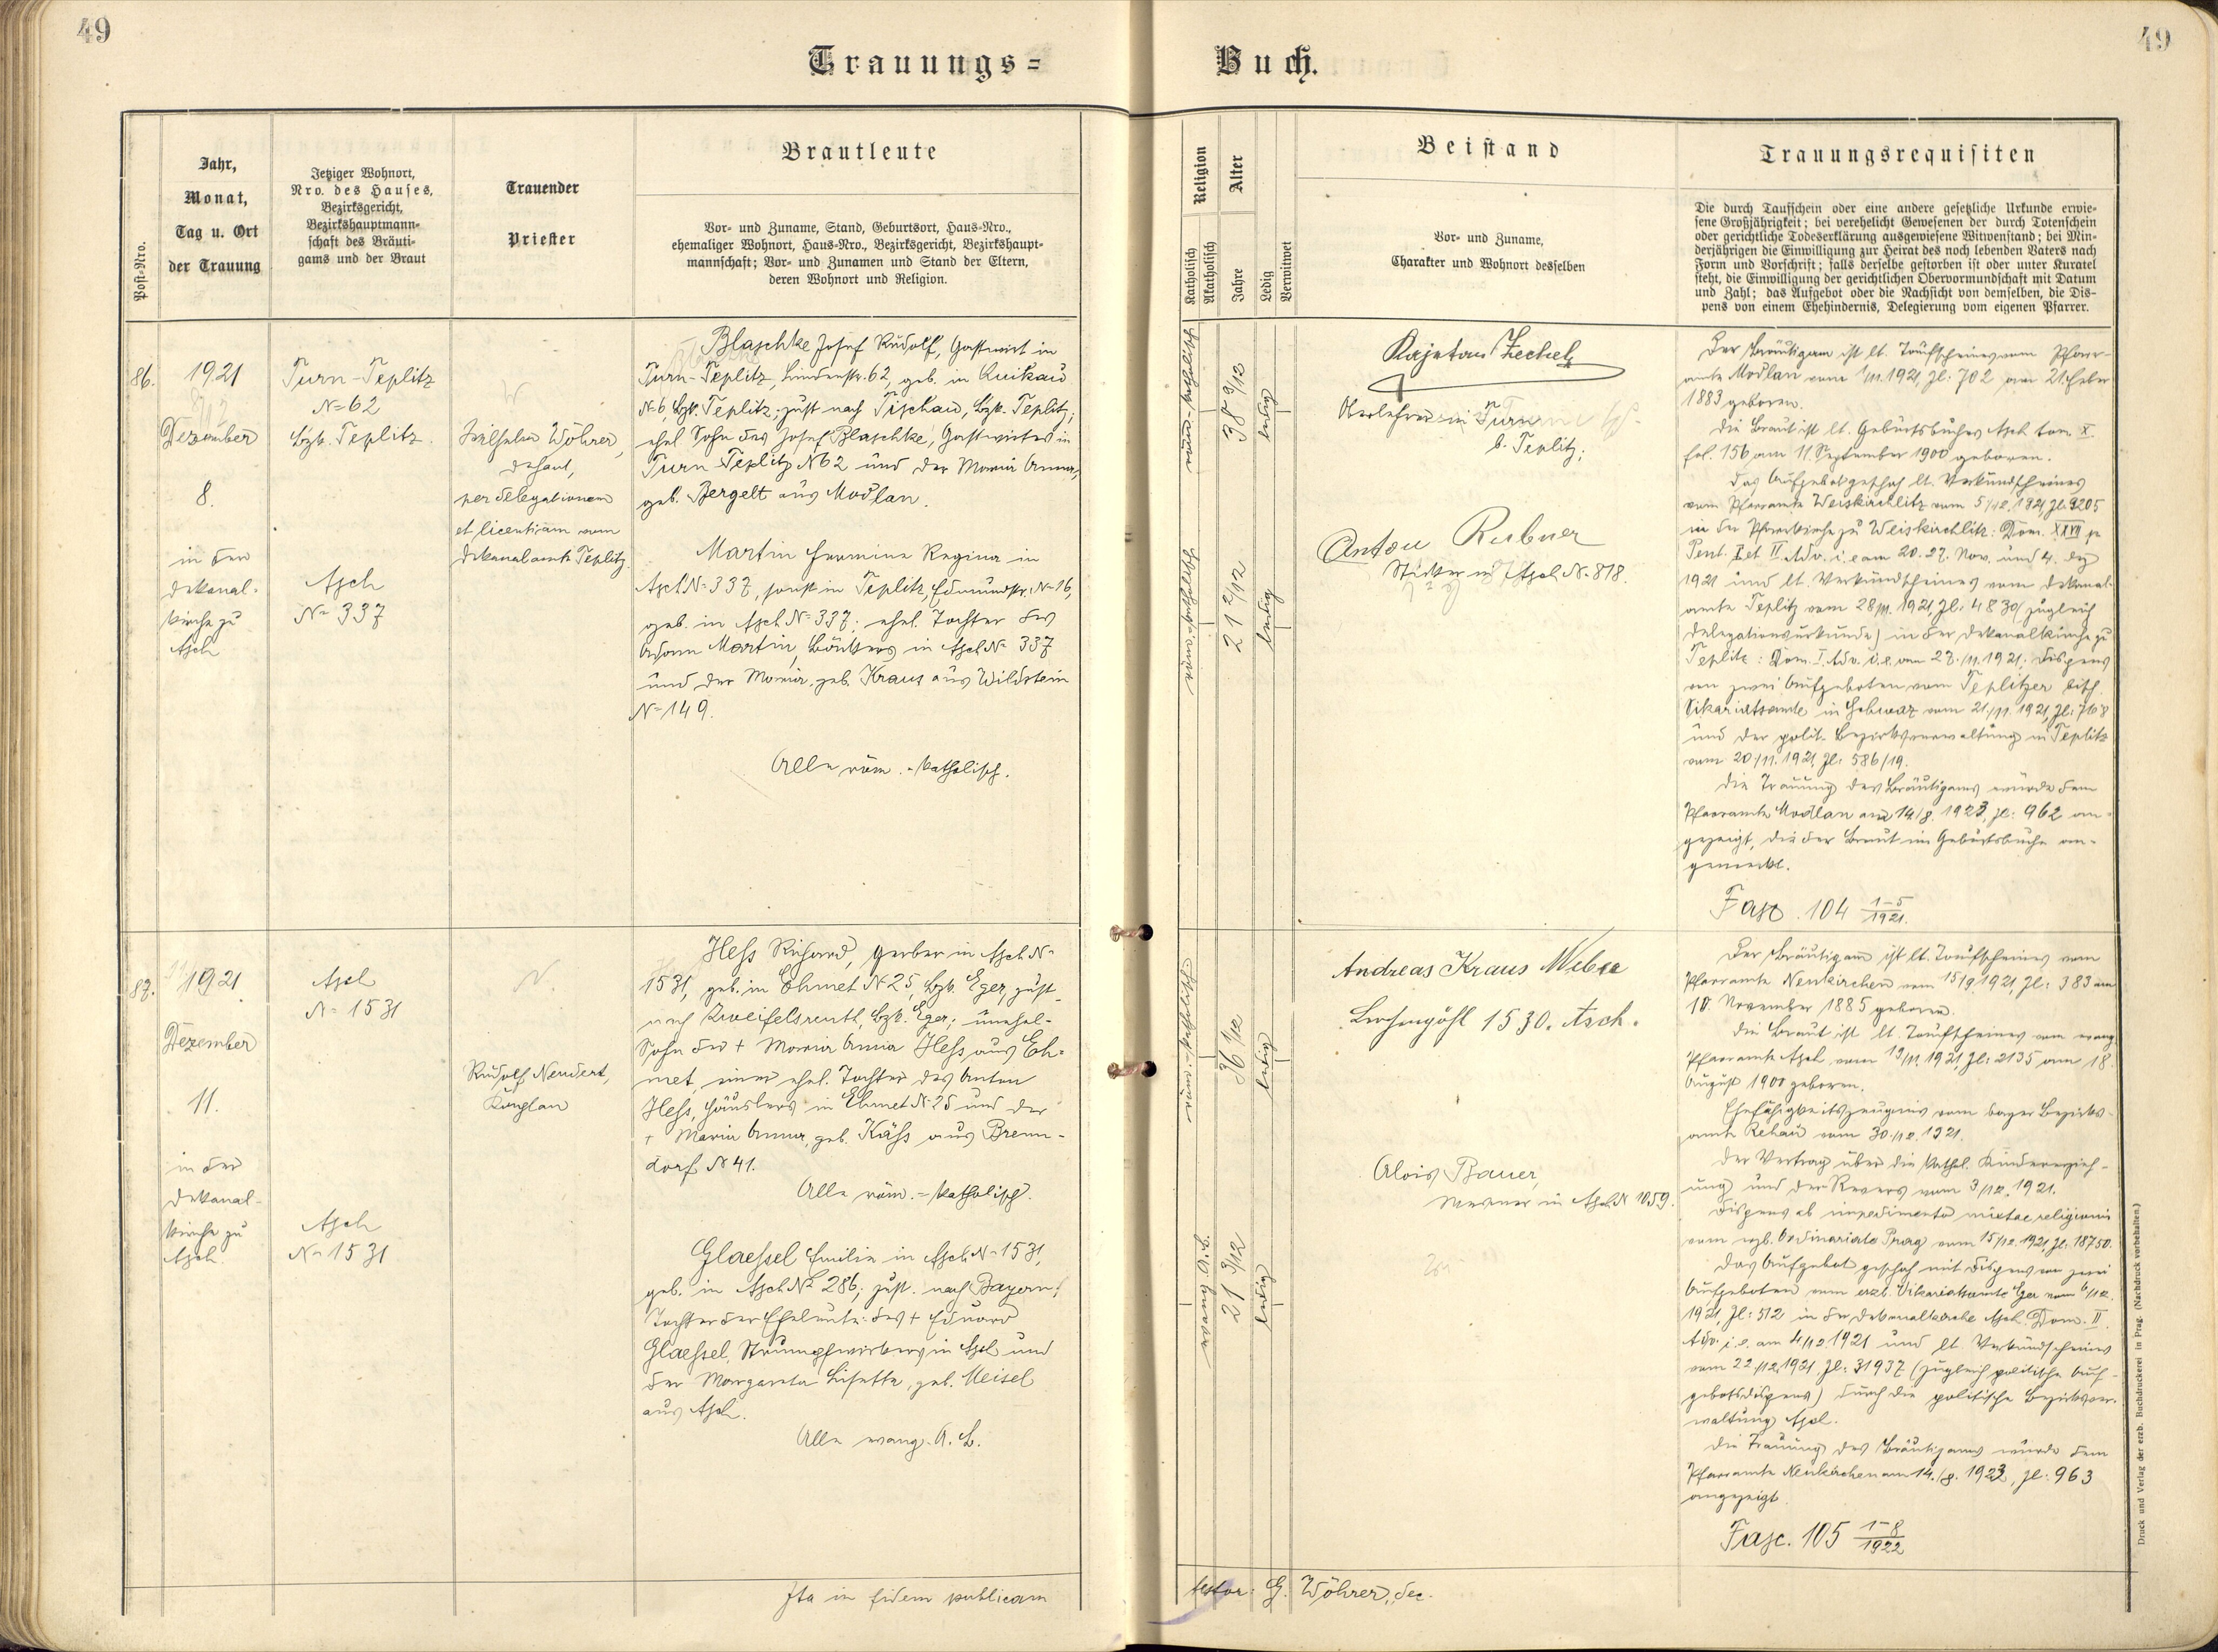 49
49
Trauungs=
Buch.
Post-Nro.
Jahr,
Monat,
Tag u. Ort
der Trauung
Jetziger Wohnort,
Nro. des Hauses,
Bezirksgericht,
Bezirkshauptmann-
schaft des Bräuti-
gams und der Braut
Trauender
Priester
Brautleute
Vor- und Zuname, Stand, Geburtsort, Haus-Nro.,
ehemaliger Wohnort, Haus-Nro., Bezirksgericht, Bezirkshaupt-
mannschaft; Vor- und Zunamen und Stand der Eltern,
deren Wohnort und Religion.
Religion
Katholisch
Akatholisch
Alter
Jahre
Ledig
Verwitwet
Beistand
Vor- und Zuname,
Charakter und Wohnort desselben
Trauungsrequisiten
Die durch Taufschein oder eine andere gesetzliche Urkunde erwie-
sene Großjährigkeit; bei verehelicht Gewesenen der durch Totenschein
oder gerichtliche Todeserklärung ausgewiesene Witwenstand; bei Min-
derjährigen die Einwilligung zur Heirat des noch lebenden Vaters nach
Form und Vorschrift; falls derselbe gestorben ist oder unter Kuratel
steht, die Einwilligung der gerichtlichen Obervormundschaft mit Datum
und Zahl; das Aufgebot oder die Nachsicht von demselben, die Dis-
pens von einem Ehehindernis, Delegierung vom eigenen Pfarrer.
86.
1921
Dezember
8.
in der
Dekanal-
kirche zu
Asch
Turn-Teplitz
N= 62
Bzk. Teplitz.
Asch
N= 337
Wilhelm Wöhrer,
Dechant,
per delegationem
et licentiam vom
Dekanalamte Teplitz.
Blaschke Josef Rudolf, Gastwirt in
Turn-Teplitz, Lindenstr. 62, geb. in Quikau
N= 6, Bzk. Teplitz; zust. nach Tischau, Bzk. Teplitz;
ehel. Sohn des Josef Blaschke, Gastwirtes in
Turn-Teplitz N 62 und der Maria Anna,
geb. Bergelt aus Modlan.
Martin Hermine Regina in
Asch N= 337, sonst in Teplitz, Edmundstr. N= 16,
geb. in Asch N= 337; ehel. Tochter des
Adam Martin, in Asch N= 337
und der Maria, geb. Kraus aus Wildstein
N= 149.
Alle röm.-katholisch.
38 9/12
ledig
21 2/12
ledig
Kajetan Zechel
Oberlehrer in Turn
b. Teplitz;
Anton Rubner
Sticker in Asch N. 818.
Der Bräutigam ist lt. Taufscheines vom Pfarr-
amte Modlan vom 1/11. 1921, Zl: 702 am 21. Feber
1883 geboren.
Die Braut ist lt. Geburtsbuches Asch tom. X.
fol. 156 am 11. September 1900 geboren.
Das Aufgebot geschah lt. Verkündscheines
vom Pfarramte Weiskirchlitz vom 5/12. 1921, Zl: 9205
in der Pfarrkirche zu Weiskirchlitz: Dom. XXVII p.
Pent. I. et II. Adv. i. e. am 20. 27. Nov. und 4. Dez.
1921 und lt. Verkündscheines vom Dekanal-
amte Teplitz vom 28/11. 1921, Zl: 4830 (zugleich
Delegationsurkunde) in der Dekanalkirche zu
Teplitz: Dom. I. Adv. i. e. am 27./11. 1921; Dispens
von zwei Aufgeboten vom Teplitzer bisch.
Vikariatsamte in vom 21./11. 1921, Zl: 768
und der polit. Bezirksverwaltung in Teplitz
vom 20/11. 1921, Zl: 586/19.
Die Trauung des Bräutigams wurde dem
Pfarramte Modlan am 14/8. 1923, Zl: 962 an-
gezeigt, die der Braut im Geburtsbuche an-
gemerkt.
Fasc. 104 1-5/1921.
87.
1921
Dezember
11.
in der
Dekanal-
kirche zu
Asch.
Asch
N= 1531
Asch
N= 1531
Rudolf Neudert,
Kaplan
Hess Richard, Gerber in Asch N=
1531, geb. in Ehmet N 25, Bzk. Eger, zust.
nach Zweifelsreuth, Bzk. Eger; unehel.
Sohn der + Maria Anna Hess aus Eh-
met, einer ehel. Tochter des Anton
Hess, Häuslers in Ehmet N 25 und der
+ Maria Anna, geb. Käss aus Brenn-
dorf N 41.
Alle röm.-katholisch.
Glaessel Emilie in Asch N= 1531,
geb. in Asch N= 286; zust. nach Bayern;
Tochter der Eheleute: des + Eduard
Glaessel, Strumpfwirkers in Asch und
der Margareta Lisette, geb. Meisel
aus Asch.
Alle evang. A. B.
36 1/12
ledig
21 3/12
ledig
Andreas Kraus Weber
1530. Asch.
Alois Bauer,
Mesner in Asch N 1059.
Der Bräutigam ist lt. Taufscheines vom
Pfarramte Neukirchen vom 15/9. 1921, Zl: 383 am
10. November 1885 geboren.
Die Braut ist lt. Taufscheines vom evang.
Pfarramte Asch vom 19/11. 1921, Zl: 2135 am 18.
August 1900 geboren.
Ehefähigkeitszeugnis vom bayer. Bezirks-
amte Rehau vom 30./12. 1921.
Der Vertrag über die kathol. Kindererzieh-
ung und der Revers vom 3/12. 1921.
Dispens ab impedimento mixtae religionis
vom erzb. Ordinariate Prag vom 15/12. 1921, Zl: 18750.
Das Aufgebot geschah mit Dispens von zwei
Aufgeboten vom erzb. Vikariatsamte Eger vom 6/12.
1921, Zl: 512 in der Dekanalkirche Asch Dom. II.
Adv. i. e. am 4/12. 1921 und lt. Verkündscheines
vom 22/12. 1921, Zl: 31937 (zugleich politische Auf-
gebotsdispens) durch die politische Bezirksver-
waltung Asch.
Die Trauung des Bräutigams wurde dem
Pfarramte Neukirchen am 14./8. 1923, Zl: 963
angezeigt.
Fasc. 105 1-8/1922
Ita in fidem publicam
testor: G. Wöhrer, dec.
Druck und Verlag der erzb. Buchdruckerei in Prag. (Nachdruck vorbehalten.)